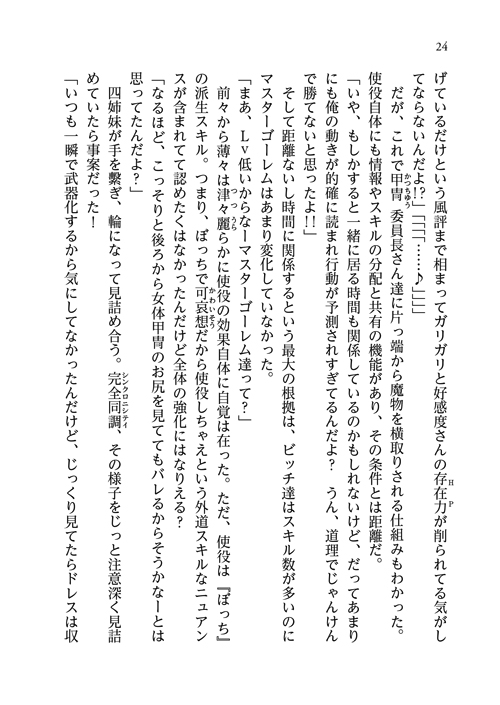 24
げているだけという風評まで相まってガリガリと好感度さんの存在力が削られてる気がし
てならないんだよ!?」「「「……♪」」」
　だが、これで甲冑委員長さん達に片っ端から魔物を横取りされる仕組みもわかった。
使役自体にも情報やスキルの分配と共有の機能があり、その条件とは距離だ。
「いや、もしかすると一緒に居る時間も関係しているのかもしれないけど、だってあまり
にも俺の動きが的確に読まれ行動が予測されすぎてるんだよ？　うん、道理でじゃんけん
で勝てないと思ったよ!!」
　そして距離ないし時間に関係するという最大の根拠は、ビッチ達はスキル数が多いのに
マスターゴーレムはあまり変化していなかった。
「まあ、Lv低いからなーマスターゴーレム達って？」
　前々から薄々は津々麗らかに使役の効果自体に自覚は在った。ただ、使役は『ぼっち』
の派生スキル。つまり、ぼっちで可哀想だから使役しちゃえという外道スキルなニュアン
スが含まれてて認めたくはなかったんだけど全体の強化にはなりえる？
「なるほど、こっそりと後ろから女体甲冑のお尻を見ててもバレるからそうかなーとは
思ってたんだよ？」
　四姉妹が手を繫ぎ、輪になって見詰め合う。完全同調、その様子をじっと注意深く見詰
めていたら事案だった！
「いつも一瞬で武器化するから気にしてなかったんだけど、じっくり見てたらドレスは収